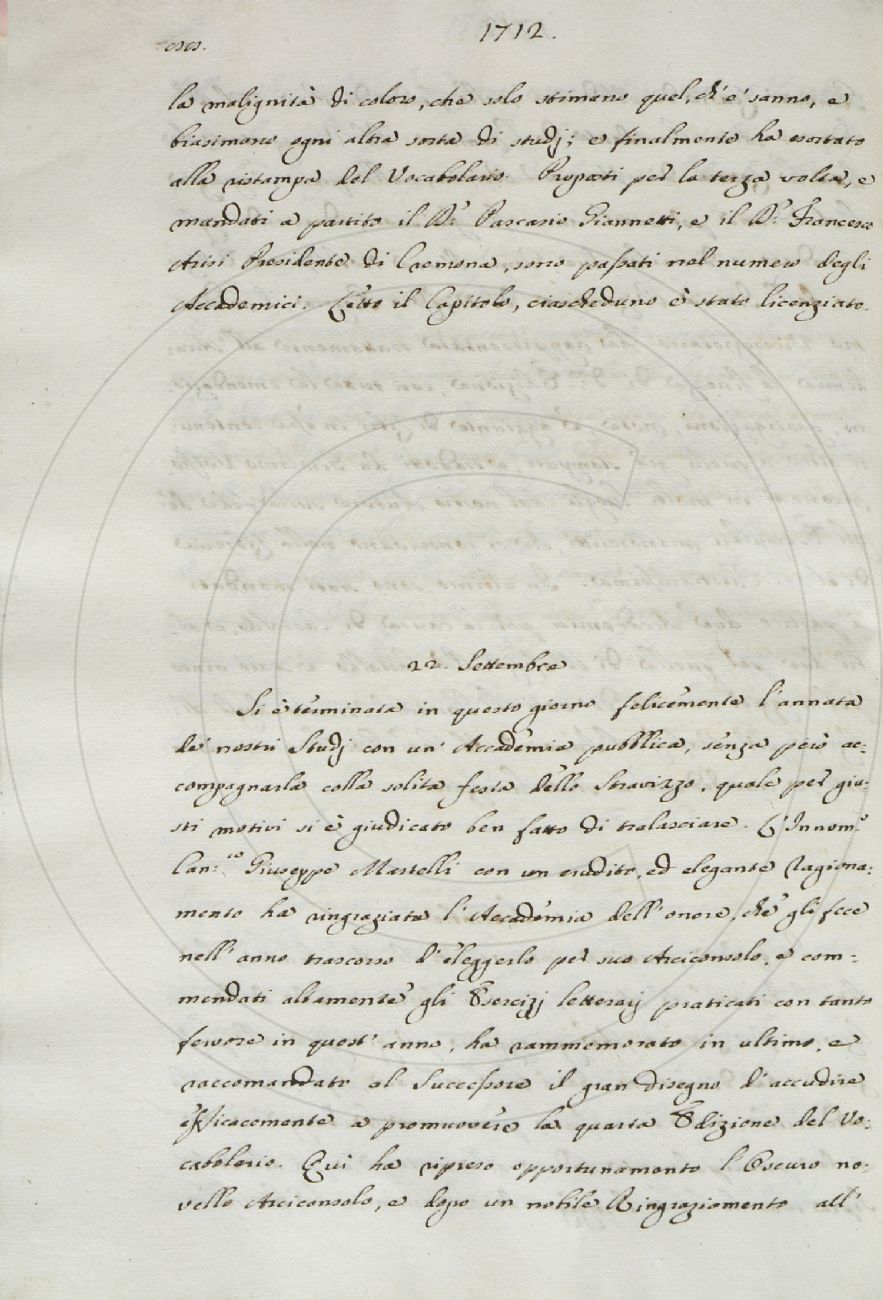 1712.
la malignità di coloro, che solo stimano quel, ch'e' sanno, e
biasimano ogni altra sorta di studj; e finalmente ha esortato
alla ristampa del Vocabolario. Proposti per la terza volta, e
mandati a partito il D.r Pascasio Giannetti, e il D.r Francesco
Arisi Presidente di Cremona, sono passati nel numero degli
Accademici. Letto il Capitolo, ciascheduno è stato licenziato.
22. Settembre
Si è terminata in questo giorno felicemente l'annata
de' nostri Studj con un' Accademia pubblica, senza però ac:
compagnarla colla solita festa dello Stravizzo, quale per giu:
sti motivi si è giudicato ben fatto di tralasciare. L'Innom.o
Can:co Giuseppe Martelli con un erudito, ed elegante Ragiona:
mento ha ringraziata l'Accademia dell'onore, che gli fece
nell'anno trascorso d'eleggerlo per suo Arciconsolo, e com:
mendati altamente gli Esercizj letterarj praticati con tanto
fervore in quest'anno, ha rammemorato in ultimo, e
raccomandato al Successore il gran disegno d'accudire
efficacemente a promuovere la quarta Edizione del Vo:
cabolario. Quì ha ripreso opportunamente l'Oscuro no:
vello Arciconsolo, e dopo un nobile Ringraziamento all'